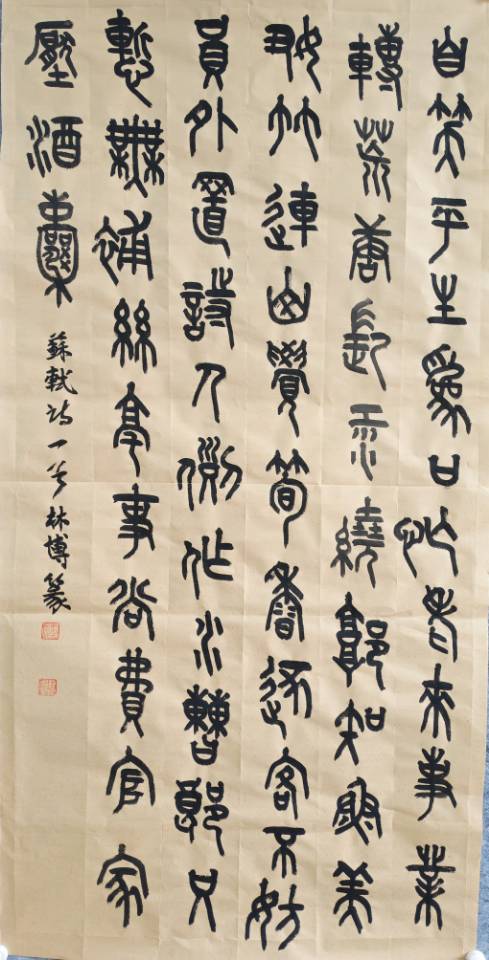 自笑平生為口忙老來事業
轉荒唐長江繞郭知魚美
好竹連山覺筍香逐客不妨
員外置詩人例作水曹郎只
慙無補絲毫事尚費官家
壓酒囊
蘇軾詩一首林博篆